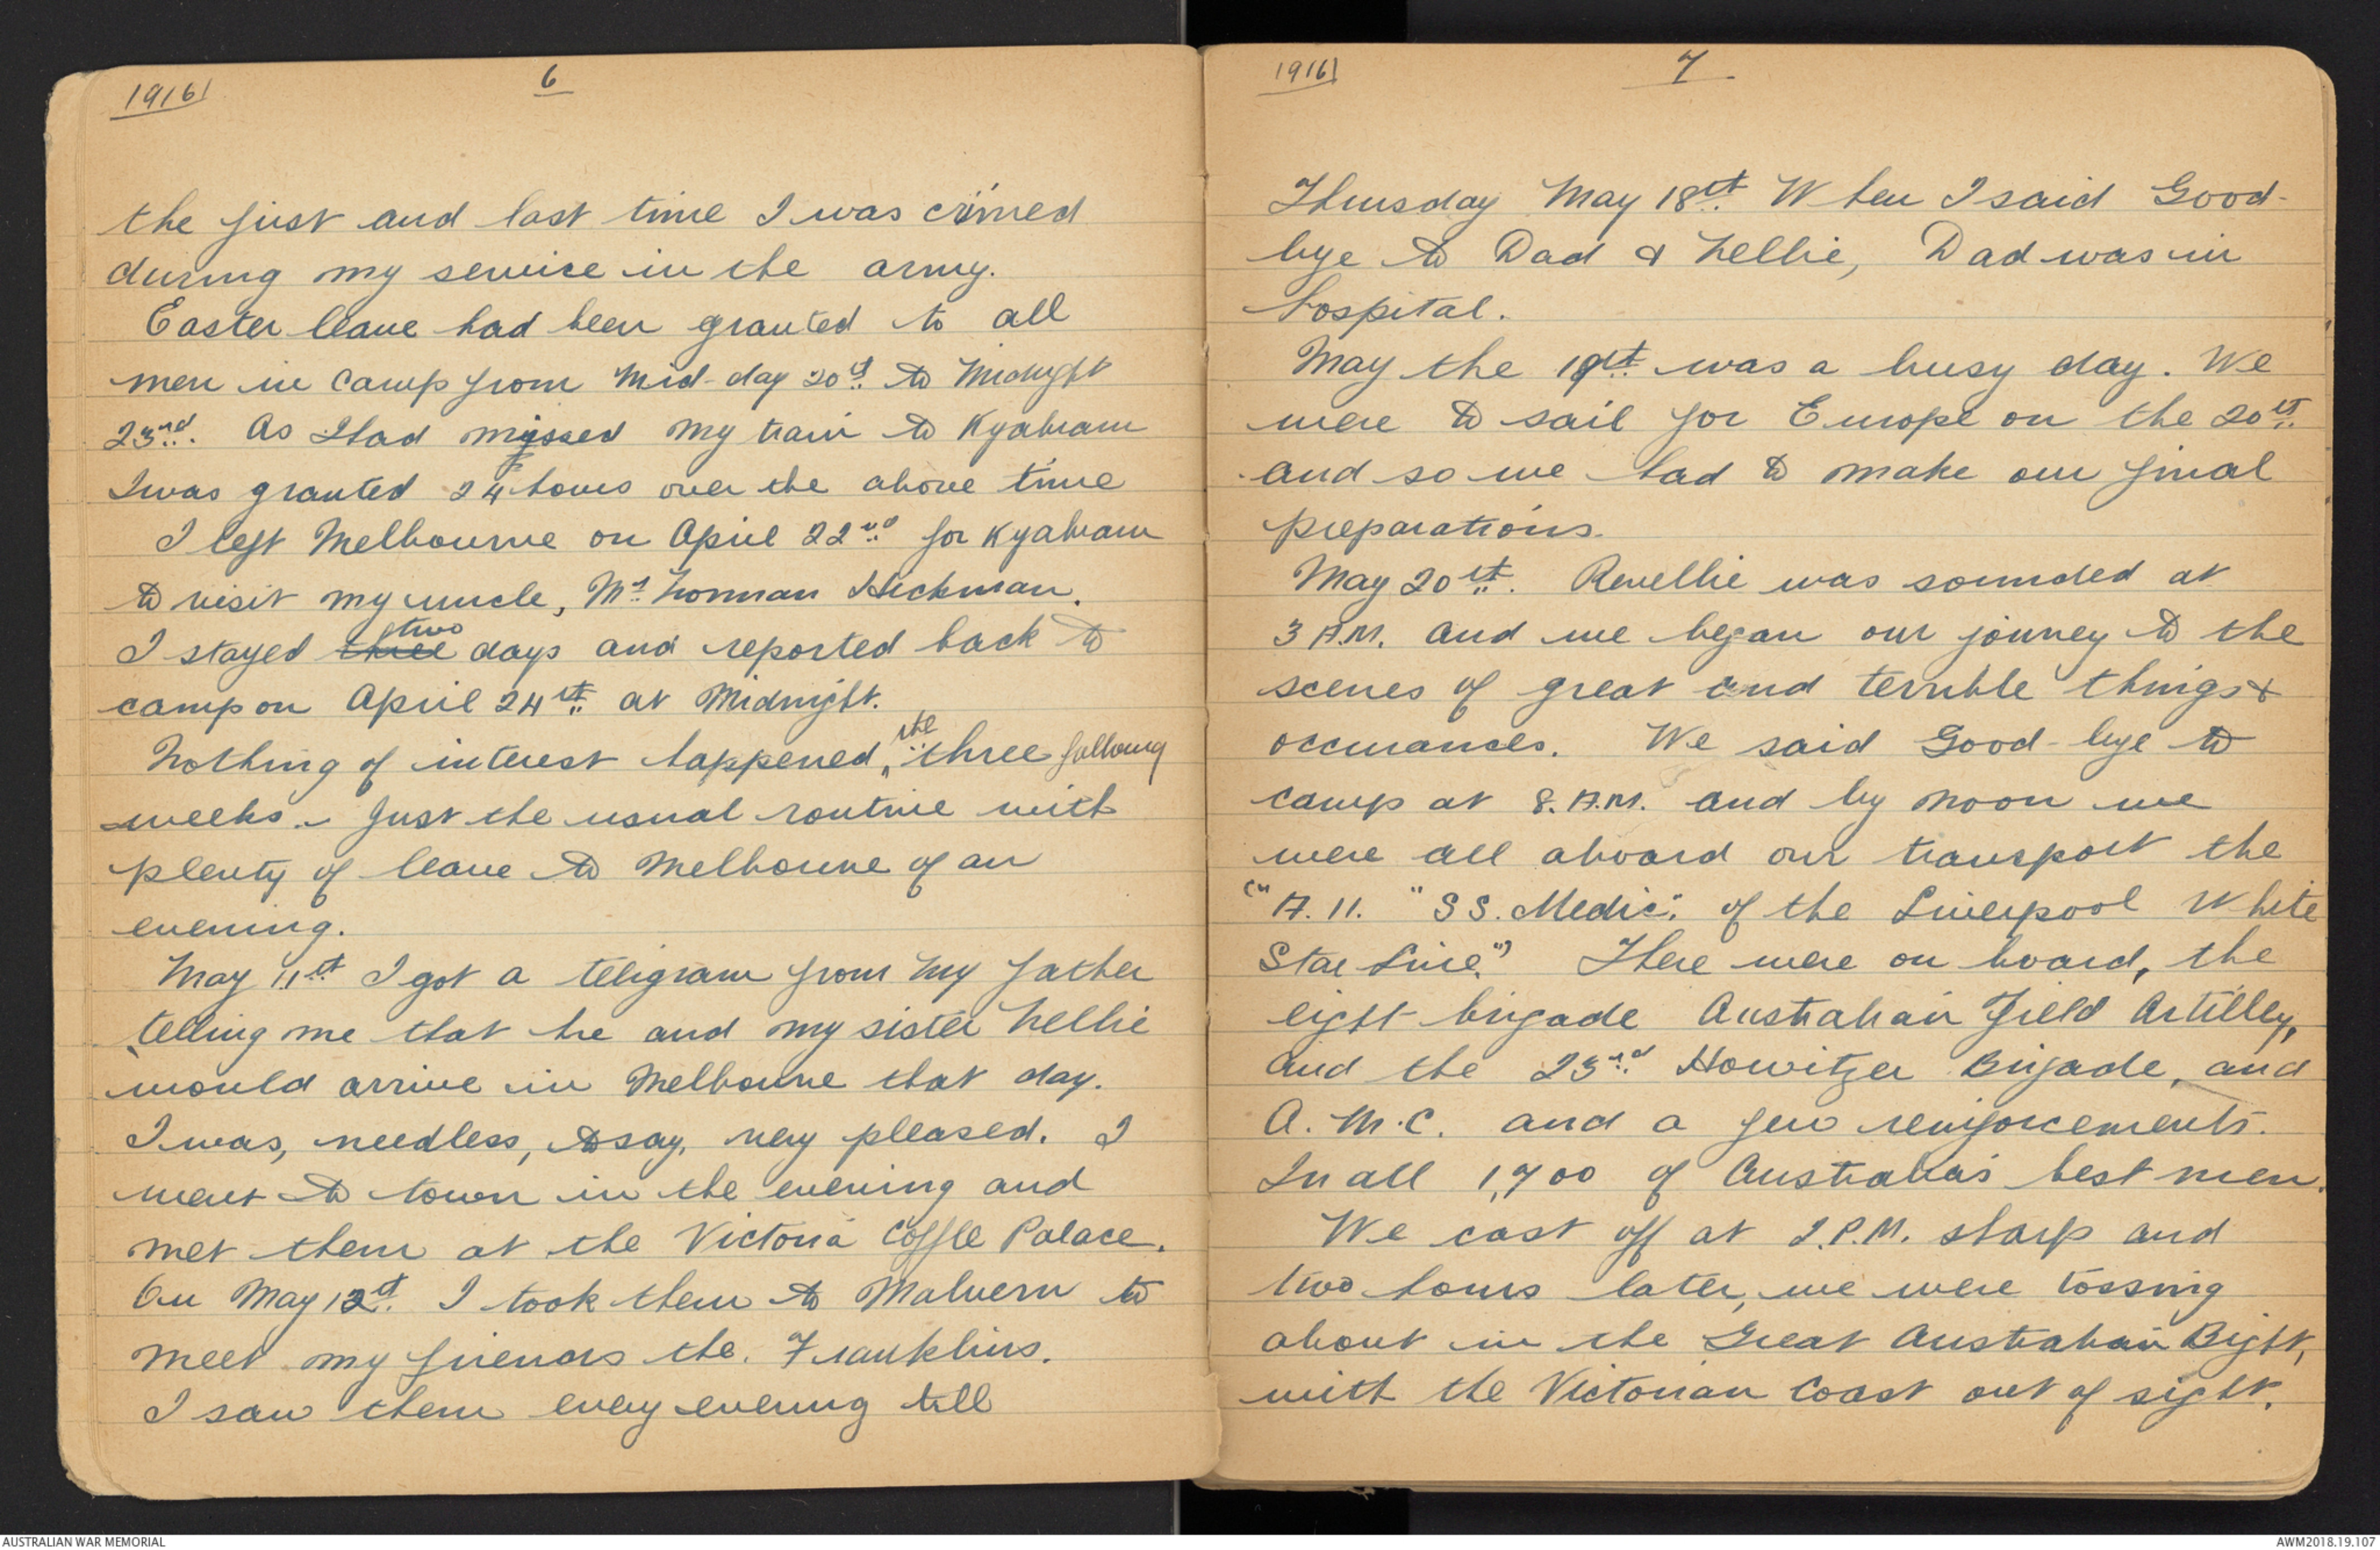 1916
6
the first and last time I was crimed
during my service in the army.
Easter leave had been granted to all
men in camp from Mid-day 20th to Midnight
23rd. As I had missed my train to Kyabram
I was granted 24 hours over the above time
I left Melbourne on April 22nd for Kyabram
to visit my uncle, Mr Norman Hickman.
I stayed three two days and reported back to
camp on April 24th at Midnight.
Nothing of interest happened, the three following
weeks. Just the usual routine with
plenty of leave to Melbourne of an
evening.
May 11th I got a teligram from my father
telling me that he and my sister Nellie
would arrive in Melbourne that day.
I was, needless, to say, very pleased. I
went to town in the evening and
met them at the Victoria Coffee Palace.
On May 12th. I took them to Malvern to
meet my friends the. Franklins.
I saw them every evening till
1916
7
Thursday May 18th. When I said Good-
bye to Dad & Nellie, Dad was in
hospital.
May the 19th was a busy day. We
were to sail for Europe on the 20th.
and so we had to make our final
preparations.
May 20th. Revellie was sounded at
3 A.M. and we began our journey to the
scenes of great and terrible things &
occurances. We said Good-bye to
camp at 8. A.M. and by noon we
were all aboard our transport the
("A. 11. "S S. Medic". of the Liverpool White
Star Line.") There were on board, the
eight brigade Australian Field Artilley,
and the 23rd Howitzer Brigade, and
A. M. C. and a few reinforcements.
In all 1,700 of Australia's best men.
We cast off at 2.P.M. sharp and
two hours later, we were tossing
about in the Great Australian Bight,
with the Victorian Coast out of sight.
AUSTRALIAN WAR MEMORIAL
AWM2018.19.107